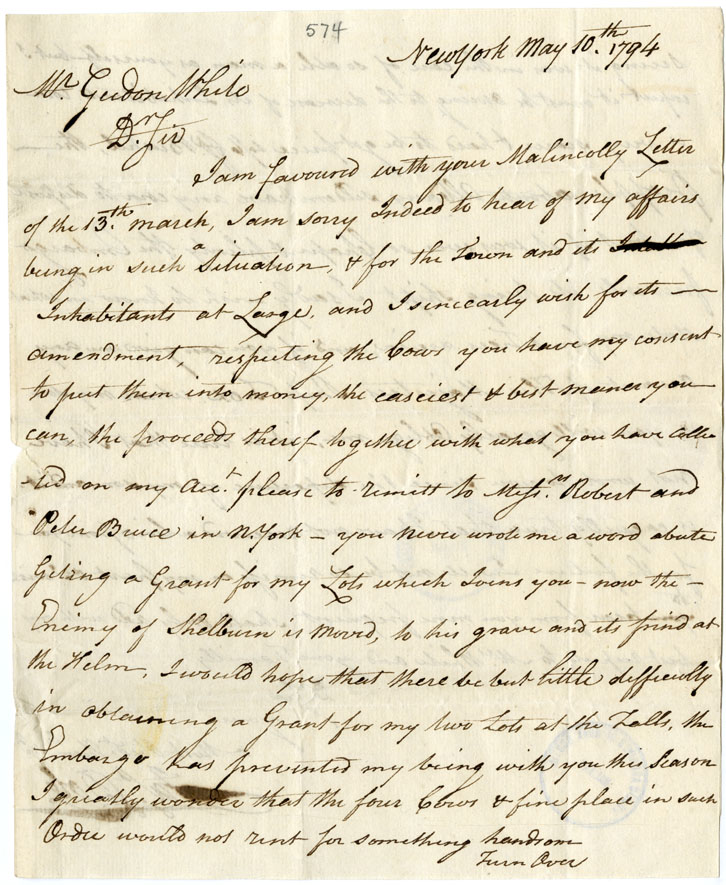 574
New York May 10.th 1794
Mr. Gedon White
Dr. Sir
I am favoured with your Malincolly Letter
of the 13.th march, I am sorry Indeed to hear of my affairs
being in such a Situation, & for the Town and its
Inhabitants at Large, and I sincearly wish for its —
amendment, respecting the Cows you have my consent
to put them into money, the easciest & best maner you
can, the proceeds theref together with what you have Colle
-ted on my Acct. please to remitt to Messrs. Robert and
Peter Bruce in N.York – you never wrote me a word abute
Geting a Grant for my Lots which Joins you – now the –
Enemy of Shelburn is Moved, to his grave and its frind at
the Helm, I would hope that there be but little difficulty
in obtaining a Grant for my two Lots at the Falls, the
Embargo has prevented my being with you this Season
I greatly wonder that the four Cows & fine place in such
Order would not rent for something handsom
Turn Over